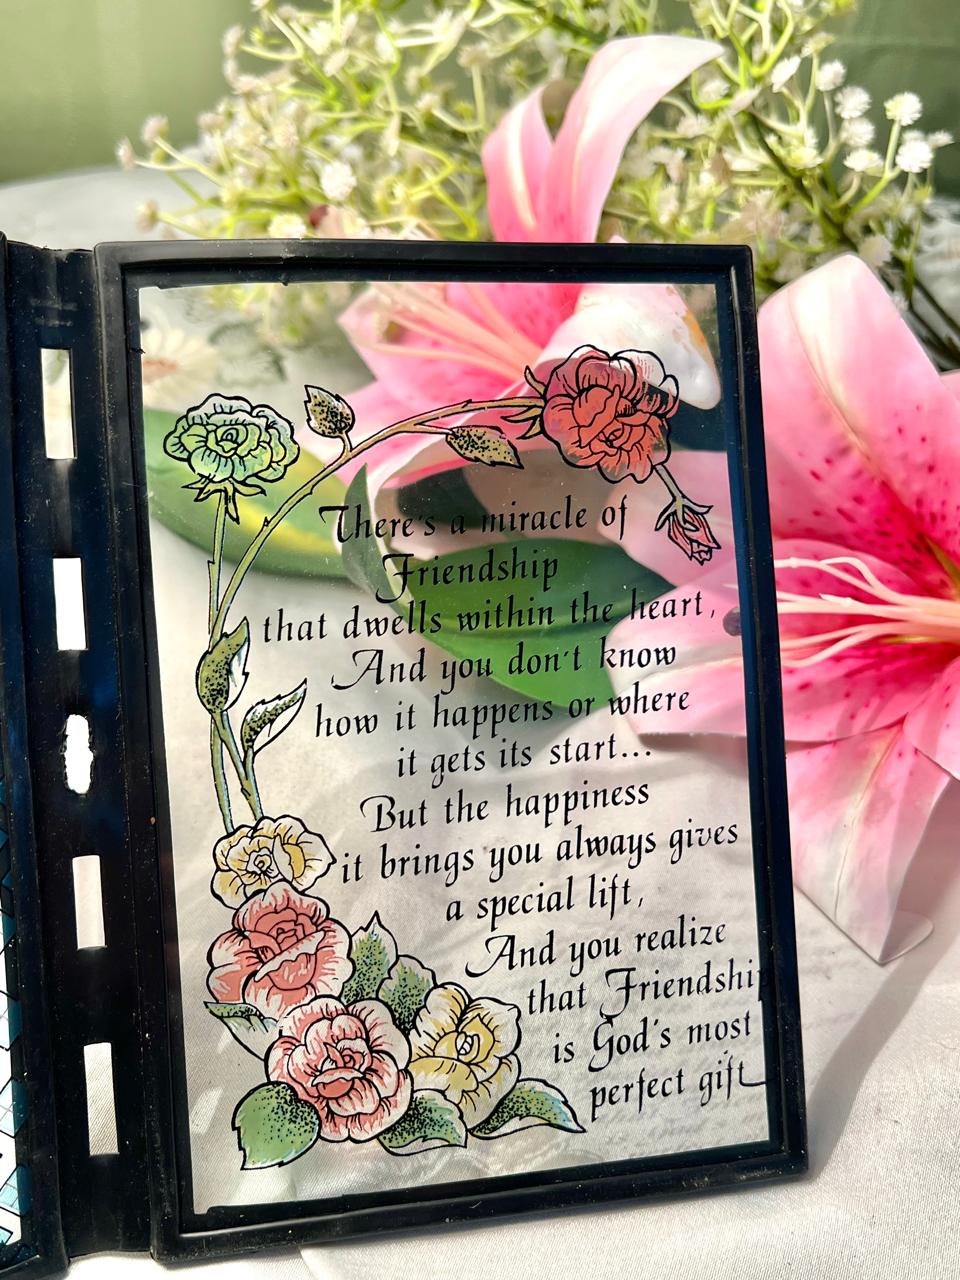 There's a miracle of
Friendship
that dwells within the heart,
And you don't know
how it happens or where
it gets its start...
But the happiness
it brings you always gives
a special lift,
And you realize
that Friendship
is God's most
perfect gift